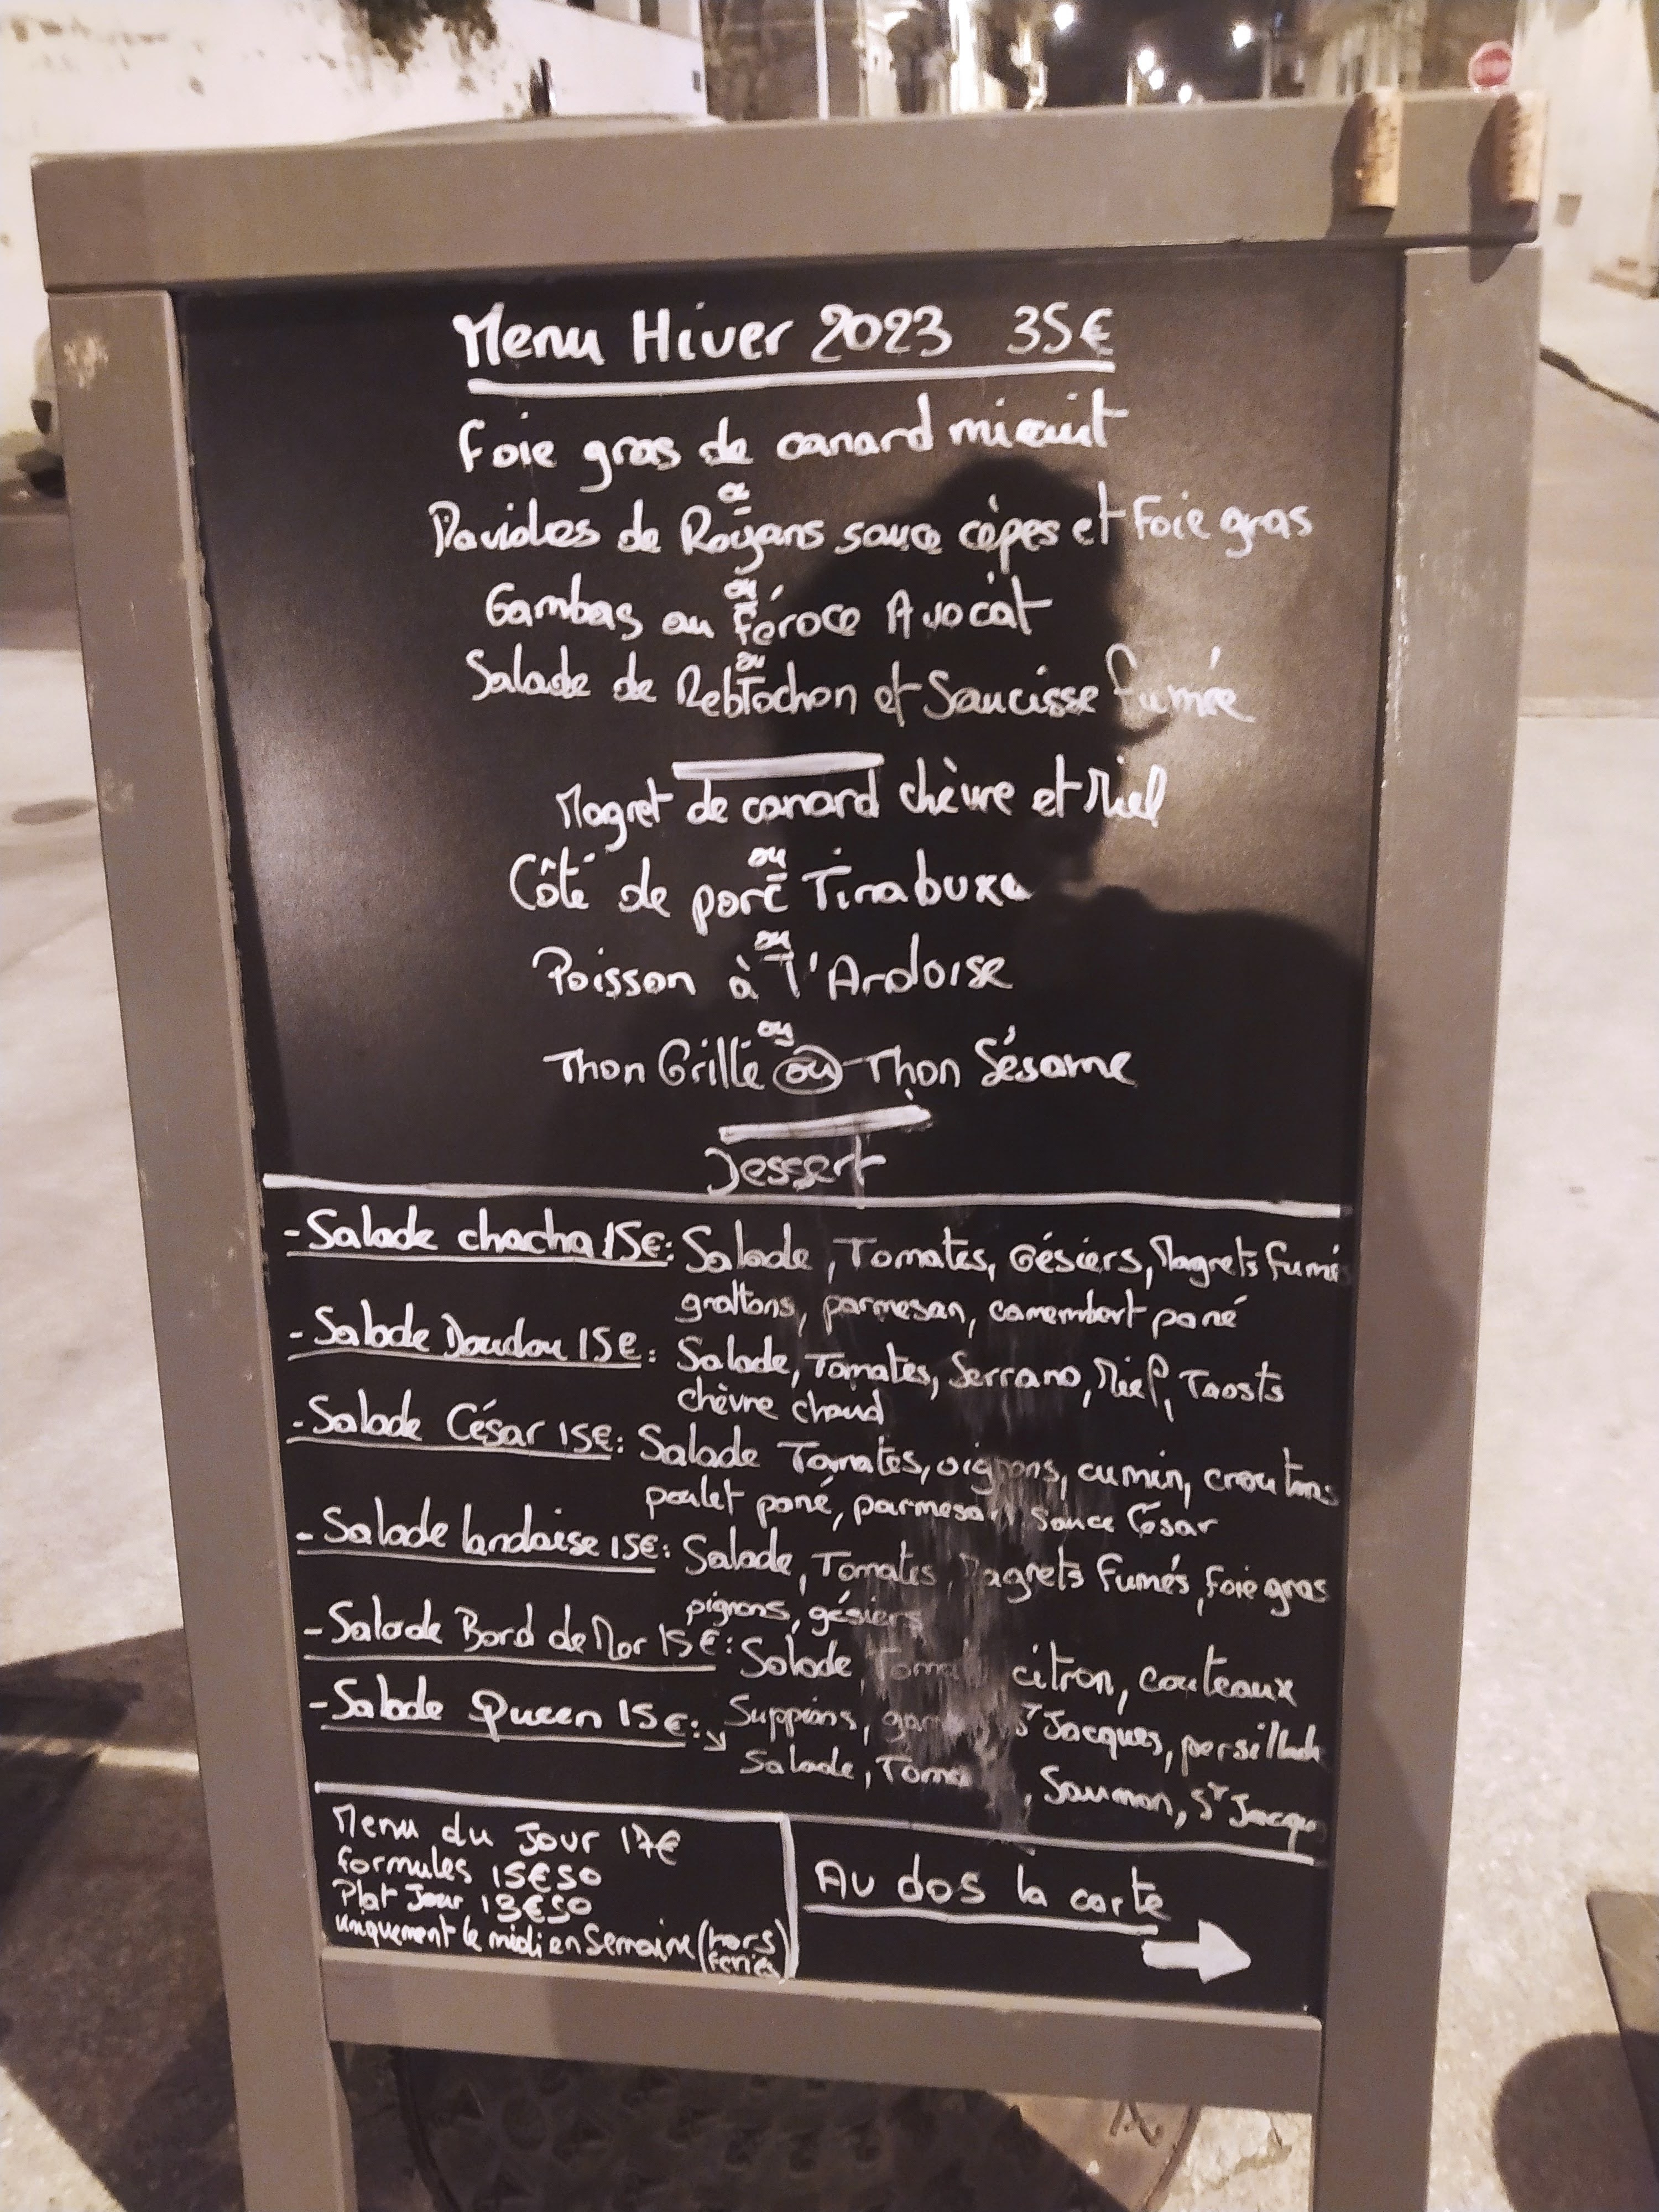 Menu Hiver 2023 35€
Foie gras de canard micuit
ou
Ravioles de Royans sauce cèpes et Foie gras
ou
Gambas au Féroce Avocat
ou
Salade de Reblochon et Saucisse fumée
Magret de canard chèvre et Miel
ou
Côté de porc Tirabuxo
ou
Poisson à l'Ardoise
ou
Thon Grillé ou Thon Sésame
Dessert
- Salade chacha 15€: Salade, Tomates, Gésiers, Magrets fumés
grattons, parmesan, camembert pané
- Salade Doudou 15€: Salade, Tomates, Serrano, Miel, Taosts
chèvre chaud
- Salade César 15€: Salade Tomates, oignons, cumin, croutons
poulet pané, parmesan sauce César
- Salade landaise 15€: Salade, Tomates, Magrets fumés, foie gras
pignons, gésiers
- Salade Bord de Mer 15€: Salade citron, couteaux
Suppions, St Jacques, persillade
- Salade Queen 15€:
Salade, Saumon, St Jacques
Menu du Jour 17€
formules 15€50
Plat Jour 13€50
uniquement le midi en Semaine (hors
feriés)
Au dos la carte